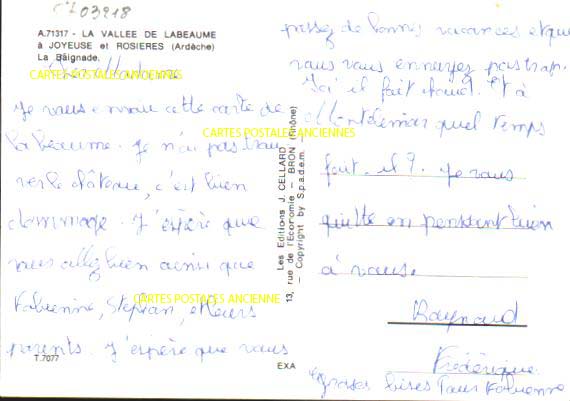 CZ03918
A.71317 - LA VALLEE DE LABEAUME
à JOYEUSE et ROSIERES (Ardèche)
La Baignade.
CARTES POSTALES ANCIENNES
Je vous envoie cette carte de
labeaume. Je n'ai pas trou
ver le château, c'est bien
dommage. J'espère que
vous allez bien ainsi que
Fabienne, Stephan, et leurs
parents. J'espère que vous
T.7077
CARTES POSTALES ANCIENNES
CARTES POSTALES ANCIENNE
Les Editions J. CELLARD
13, rue de l'Economie - BRON (Rhône)
- Copyright by S.p.a.d.e.m. -
EXA
passez de bonnes vacances et que
vous vous ennuyez pas trop.
Ici il fait chaud. Et à
Montélimar quel temps
fait-il ? Je vous
quitte en pensant bien
à vous.
Raynaud
Frédérique
grosses bises Pour Fabienne